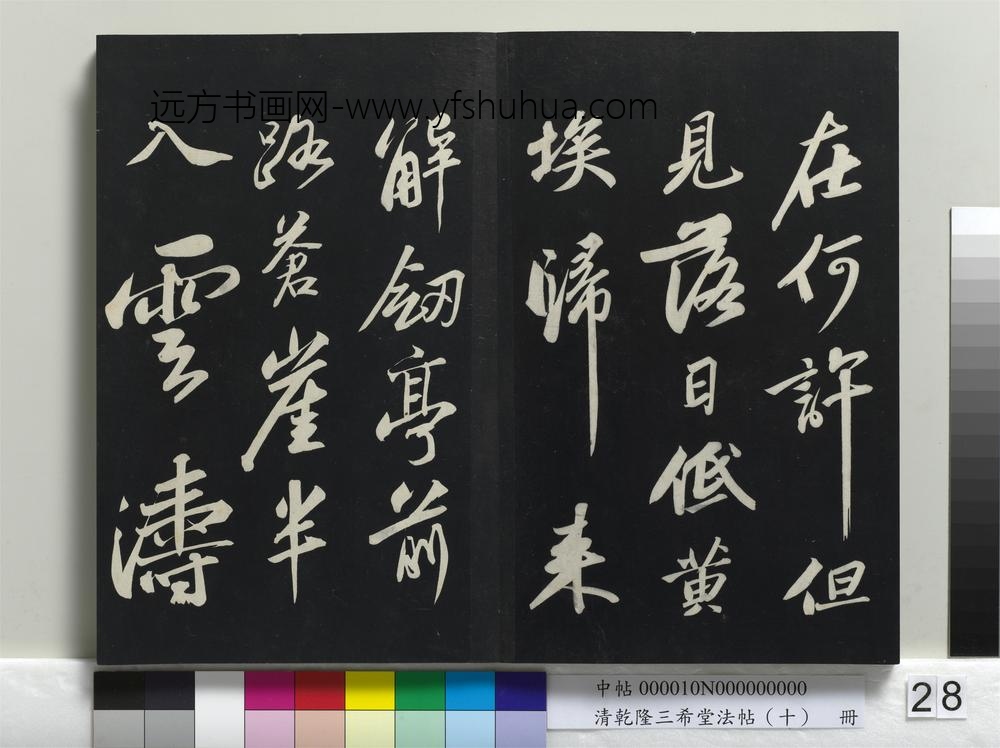 在何許但
見落日低黃
埃歸来
解劒亭前
路蒼崖半
入雲濤
远方书画网-www.yfshuhua.com
中帖 000010N000000000
清乾隆三希堂法帖（十） 冊
28